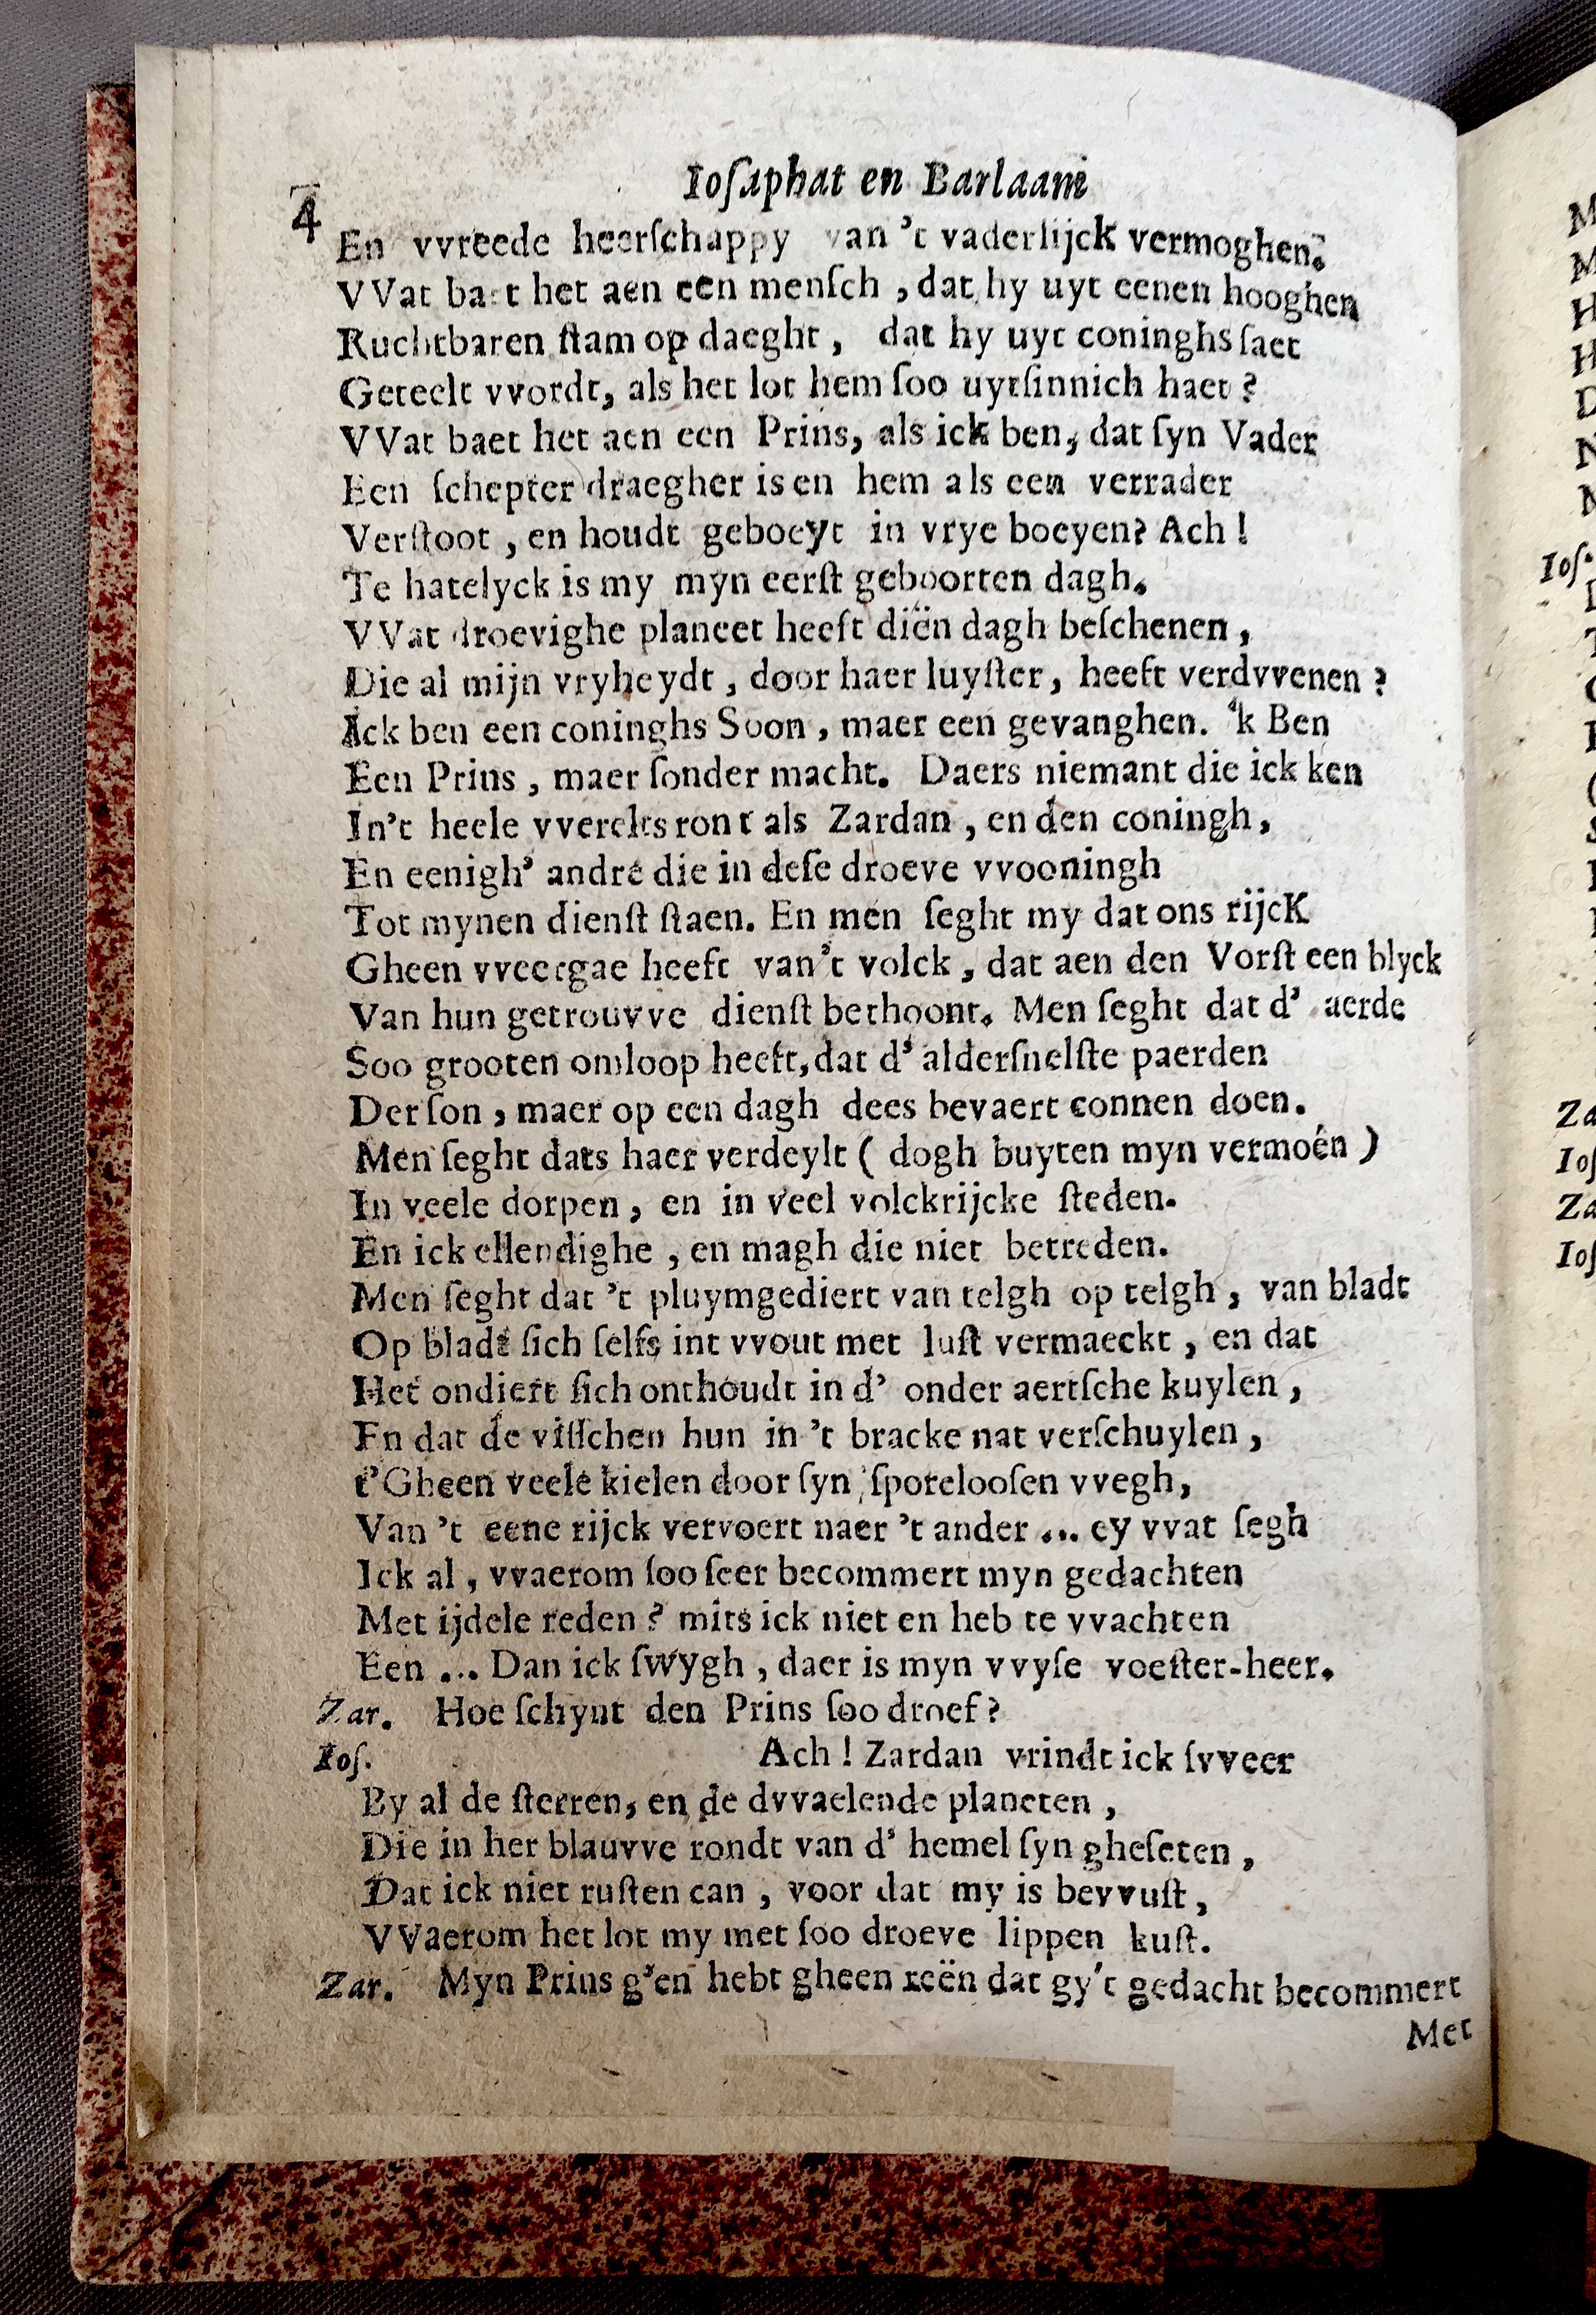 4
Ioſaphat en Barlaam
En vvreede heerſchappy van 't vaderlijck vermoghen.
VVat baet het aen een menſch, dat hy uyt eenen hooghen
Ruchtbaren ſtam op daeght, dat hy uyt coninghs ſaet
Geteelt vvordt, als het lot hem ſoo uytſinnich haet?
VVat baet het aen een Prins, als ick ben, dat ſyn Vader
Een ſchepter draegher is en hem als een verrader
Verſtoot, en houdt geboeyt in vrye boeyen? Ach!
Te hatelyck is my myn eerſt geboorten dagh.
VVat droevighe planeet heeft diën dagh beſchenen,
Die al mijn vryheydt, door haer luyſter, heeft verdvvenen?
Ick ben een coninghs Soon, maer een gevanghen. 'k Ben
Een Prins, maer ſonder macht. Daers niemant die ick ken
In't heele vverelts ront als Zardan, en den coningh,
En eenigh' andre die in deſe droeve vvooningh
Tot mynen dienſt ſtaen. En men ſeght my dat ons rijcK
Gheen vveergae heeft van't volck, dat aen den Vorſt een blyck
Van hun getrouvve dienſt bethoont. Men ſeght dat d' aerde
Soo grooten omloop heeft, dat d' alderſnelſte paerden
Der ſon, maer op een dagh dees bevaert connen doen.
Men ſeght dats haer verdeylt ( dogh buyten myn vermoén )
In veele dorpen, en in veel volckrijcke ſteden.
En ick ellendighe, en magh die niet betreden.
Men ſeght dat 't pluymgediert van telgh op telgh, van bladt
Op bladt ſich ſelfs int vvout met luſt vermaeckt, en dat
Het ondiert ſich onthoudt in d' onder aertſche kuylen,
En dat de viſſchen hun in 't bracke nat verſchuylen,
t'Gheen veele kielen door ſyn ſporelooſen vvegh,
Van 't eene rijck vervoert naer 't ander ... ey vvat ſegh
Ick al, vvaerom ſoo ſeer becommert myn gedachten
Met ijdele reden? mits ick niet en heb te vvachten
Een ... Dan ick ſwygh, daer is myn vvyſe voeſter-heer.
Zar. Hoe ſchynt den Prins ſoo droef?
Ioſ. Ach! Zardan vrindt ick ſvveer
By al de ſterren, en de dvvaelende planeten,
Die in het blauvve rondt van d' hemel ſyn gheſeten,
Dat ick niet ruſten can, voor dat my is bevvuſt,
VVaerom het lot my met ſoo droeve lippen kuſt.
Zar. Myn Prins g'en hebt gheen reën dat gy't gedacht becommert
Met
M
M
H
H
D
N
Ioſ.
Za
Ioſ
Za
Ioſ